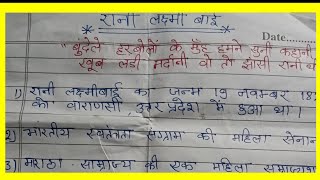 रानी लक्ष्मी बाई
Date....
"बुंदेले हरबोलों के मुँह हमने सुनी कहानी
खूब लड़ी मर्दानी वो तो झाँसी रानी
1) रानी लक्ष्मीबाई का जन्म 19 नवम्बर 18
को वाराणसी, उत्तर प्रदेश में हुआ था।
2) भारतीय स्वतंत्रता संग्राम की महिला सेनान
3) मराठा साम्राज्य की एक महिला